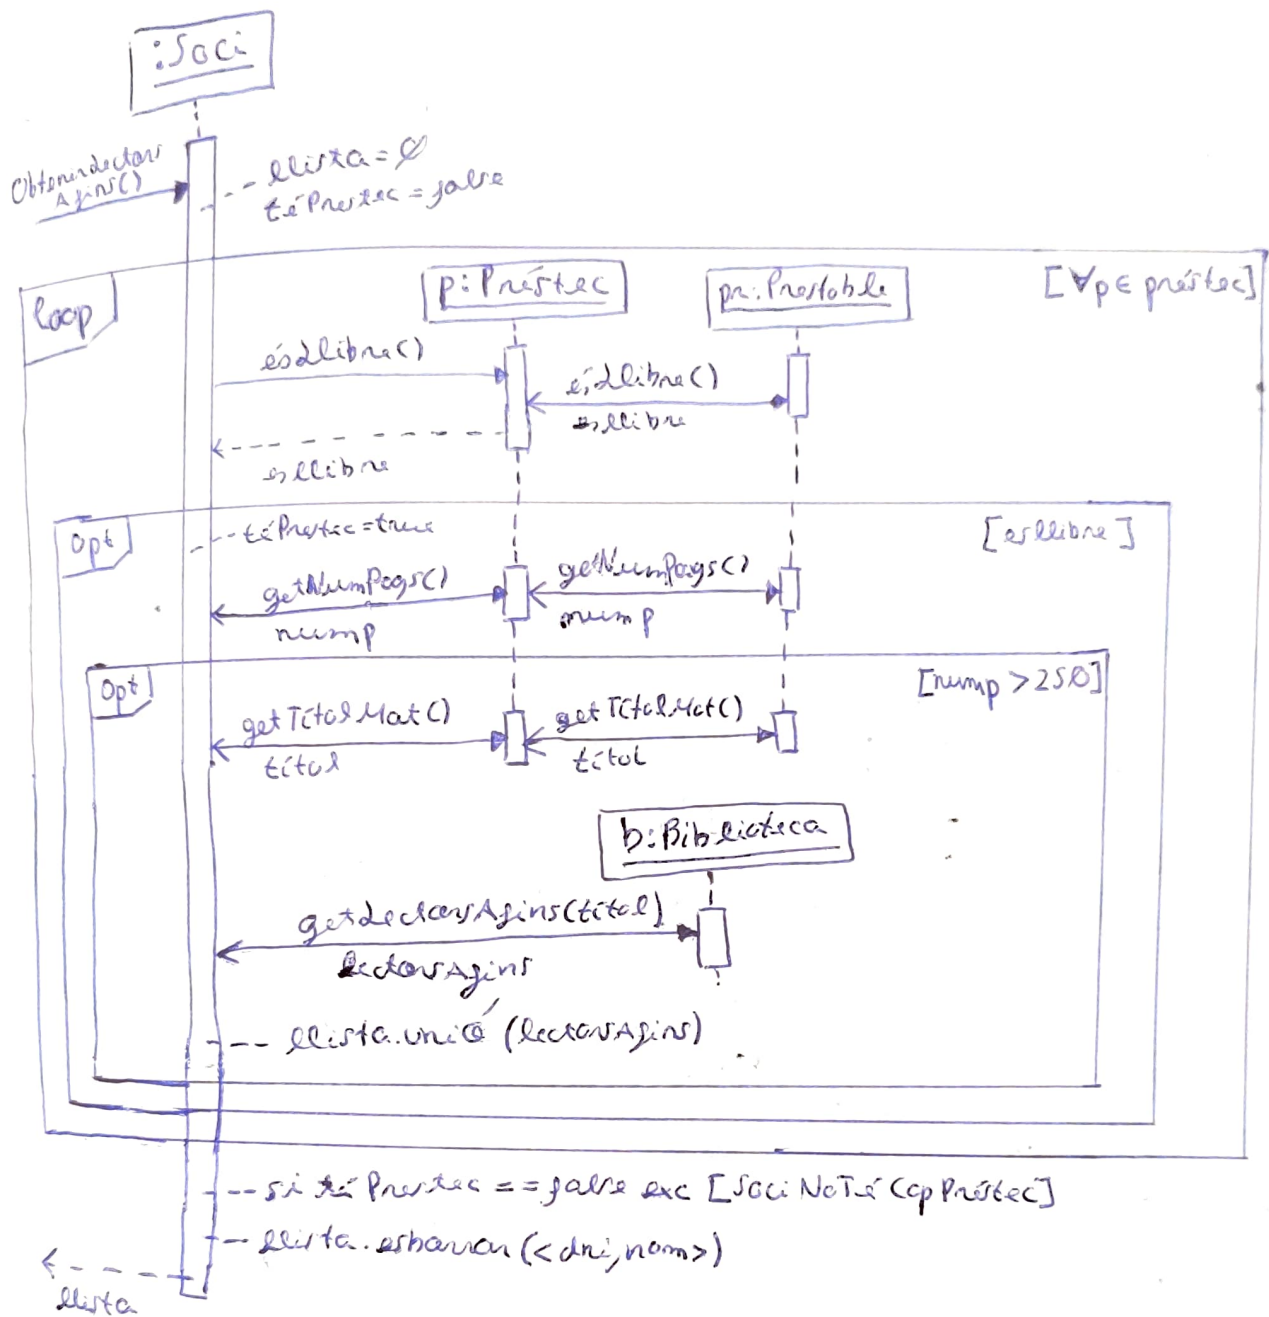 :Soci
ObtenirLectors
Afins()
llista = ∅
téPrestec = false
loop
p: Préstec
pr: Prestable
[∀p ∈ préstec]
ésLlibre()
ésLlibre()
esllibre
esllibre
Opt
téPrestec = true
[esllibre]
getNumPags()
getNumPags()
nump
nump
Opt
[nump > 250]
getTítolMat()
getTítolMat()
títol
títol
b: Biblioteca
getLectorsAfins(títol)
lectorsAfins
llista.unió (lectorsAfins)
si té Prestec == false exc [Soci NoTé Cap Préstec]
llista.esbarrar(<dni, nom>)
llista